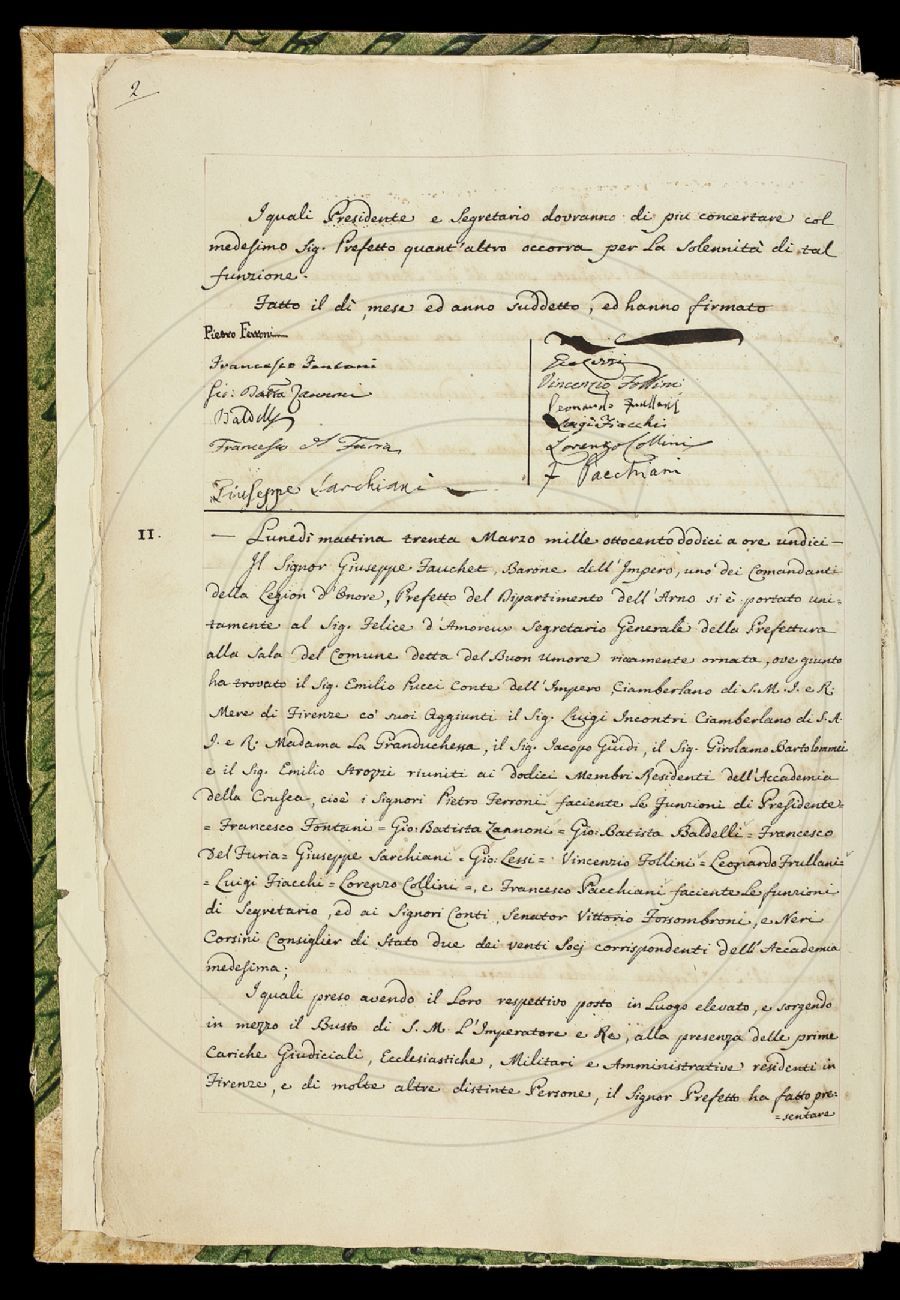 2
I quali Presidente e Segretario dovranno di piu concertare col
medesimo Sig. Prefetto quant'altro occorra per la solennità di tal
funzione.
Fatto il dì, mese ed anno suddetto, ed hanno firmato
Pietro Ferroni
Francesco Fontani
Gio: Batta Zannoni
Baldelli
Francesco del Furia
Giuseppe Sarchiani
Vincenzio Follini
Leonardo Frullani
Luigi Fiacchi
Lorenzo Collini
F Pacchiani
II.
— Lunedì mattina trenta Marzo mille ottocento dodici a ore undici —
Il Signor Giuseppe Fauchet, Barone dell'Impero, uno dei Comandanti
della Legion d'Onore, Prefetto del Dipartimento dell'Arno si è portato uni=
tamente al Sig. Felice d'Amoreux Segretario Generale della Prefettura
alla Sala del Comune detta del Buon umore riccamente ornata, ove giunto
ha trovato il Sig. Emilio Pucci Conte dell'Impero Ciamberlano di S. M. I. e R:
Mere di Firenze co' suoi Aggiunti il Sig. Luigi Incontri Ciamberlano di S. A.
I. e R: Madama la Granduchessa, il Sig. Jacopo Guidi, il Sig. Girolamo Bartolommei
e il Sig. Emilio Strozzi riuniti ai dodici Membri Residenti dell'Accademia
della Crusca, cioè i Signori Pietro Ferroni faciente le funzioni di Presidente=
= Francesco Fontani = Gio: Batista Zannoni = Gio: Batista Baldelli = Francesco
Del Furia = Giuseppe Sarchiani = Gio: Lessi = Vincenzio Follini = Leonardo Frullani=
= Luigi Fiacchi = Lorenzo Collini =, e Francesco Pacchiani faciente le funzioni
di Segretario, ed ai Signori Conti, Senator Vittorio Fossombroni, e Neri
Corsini Consiglier di Stato due dei venti Socj corrispondenti dell'Accademia
medesima;
I quali preso avendo il Loro respettivo posto in Luogo elevato, e sorgendo
in mezzo il Busto di S. M. L'Imperatore e Re, alla presenza delle prime
Cariche Giudiciali, Ecclesiastiche, Militari e Amministrative residenti in
Firenze, e di molte altre distinte Persone, il Signor Prefetto ha fatto pre=
=sentare